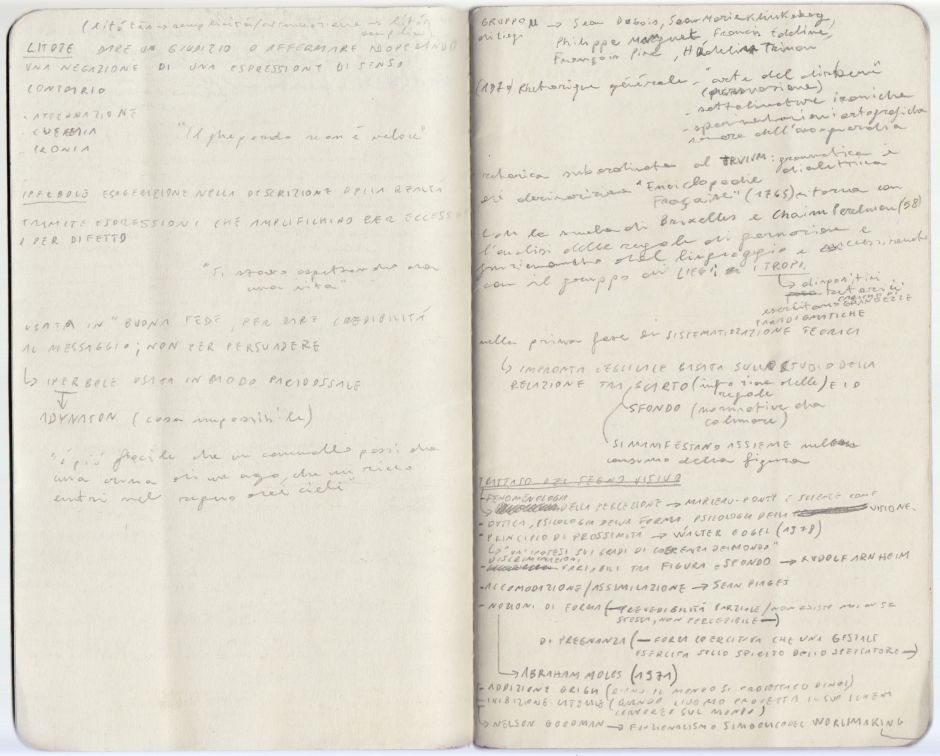 (litótes → semplicità/
LITOTE DARE UN GIUDIZIO O AFFERMARE ADOPERANDO
UNA NEGAZIONE DI UNA ESPRESSIONE DI SENSO
CONTRARIO
- ATTENUAZIONE
"Il ghepardo non è veloce"
- IRONIA
IPERBOLE ESAGERAZIONE NELLA DESCRIZIONE DELLA REALTÀ
TRAMITE ESPRESSIONI CHE AMPLIFICHINO PER ECCESSO
O PER DIFETTO
"Ti stavo aspettando da
una vita"
USATA IN "BUONA FEDE, PER DARE CREDIBILITÀ
AL MESSAGGIO; NON PER PERSUADERE
↳ IPERBOLE USATA IN MODO PARADOSSALE
ADYNATON (cosa impossibile)
"è più facile che un cammello passi da
una cruna di un ago, che un ricco
entri nel regno dei cieli"
GRUPPO μ → Jean Dubois, Jean Marie Klinkenberg,
di Liegi
Philippe Minguet, Francis Edeline,
François Pire, Hadelin Trinon
(1970) Rhétorique générale,
(persuasione)
- sottolineature ironiche
- sperimentazioni ortografiche
dell'avanguardia
retorica subordinata al TRIVIUM: grammatica e
dialettica
"Enciclopedie
Française" (1765) ritorna con
con la scuola di Bruxelles e Chaim Perelman (58)
l'analisi delle regole di persuasione e
funzionamento del linguaggio e successivamente
con il gruppo di LIEGI I TROPI.
↳ dispositivi
retorici
PARADIGMATICHE
nella prima fase di SISTEMATIZZAZIONE TEORICA
↳ IMPRONTA BASATA SULLO STUDIO DELLA
RELAZIONE TRA SCARTO (infrazione delle) E LO
regole
SFONDO (normative da
colmare)
SI MANIFESTANO ASSIEME nel
consumo della figura
TRATTATO DEL SEGNO VISIVO
- FENOMENOLOGIA
DELLA PERCEZIONE → MARLEAU-PONTY E SCIENZE COME
- OTTICA, PSICOLOGIA DELLA FORMA, PSICOLOGIA DELLA VISIONE.
- PRINCIPIO DI PROSSIMITÀ → WALTER GOGEL (1978)
↳ "UN'IPOTESI SUI GRADI DI COERENZA DEI MONDO"
DISCRIMINAZIONI
- VARIABILI TRA FIGURA E SFONDO → RUDOLF ARNHEIM
- ACCOMODAZIONE/ASSIMILAZIONE → JEAN PIAGET
- NOZIONI DI FORMA (→ PREVEDIBILITÀ PARZIALE/non esiste mai in se
stessa, NON PERCEPIBILE →)
DI PREGNANZA (→ FORZA COERCITIVA CHE UNA GESTALT
ESERCITA SULLO SPIRITO DELLO SPETTATORE →)
↳ ABRAHAM MOLES (1971)
- ADDIZIONE (QUANDO IL MONDO SI PROIETTA IN NOI)
- INIBIZIONE LATERALE (QUANDO L'UOMO PROIETTA IL SUO SCHEMA
SUL MONDO)
↳ NELSON GOODMAN → FUNZIONALISMO SIMBOLICO DEL WORLDMAKING